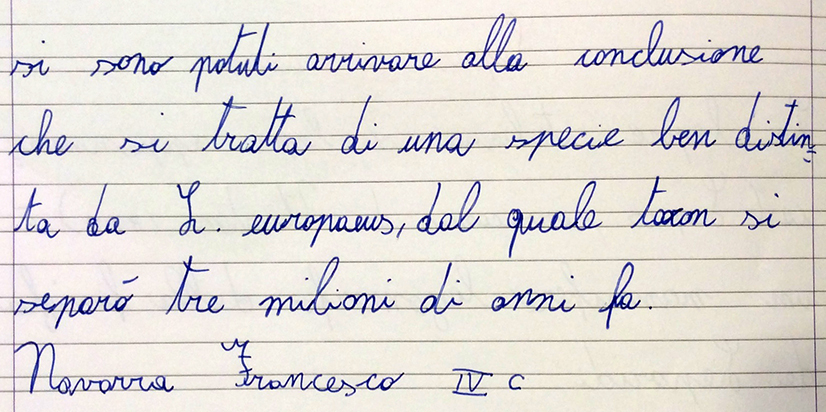 si sono potuti arrivare alla conclusione
che si tratta di una specie ben distin=
ta da L. europaeus, dal quale taxon si
separó tre milioni di anni fa.
Navarra Francesco IV C